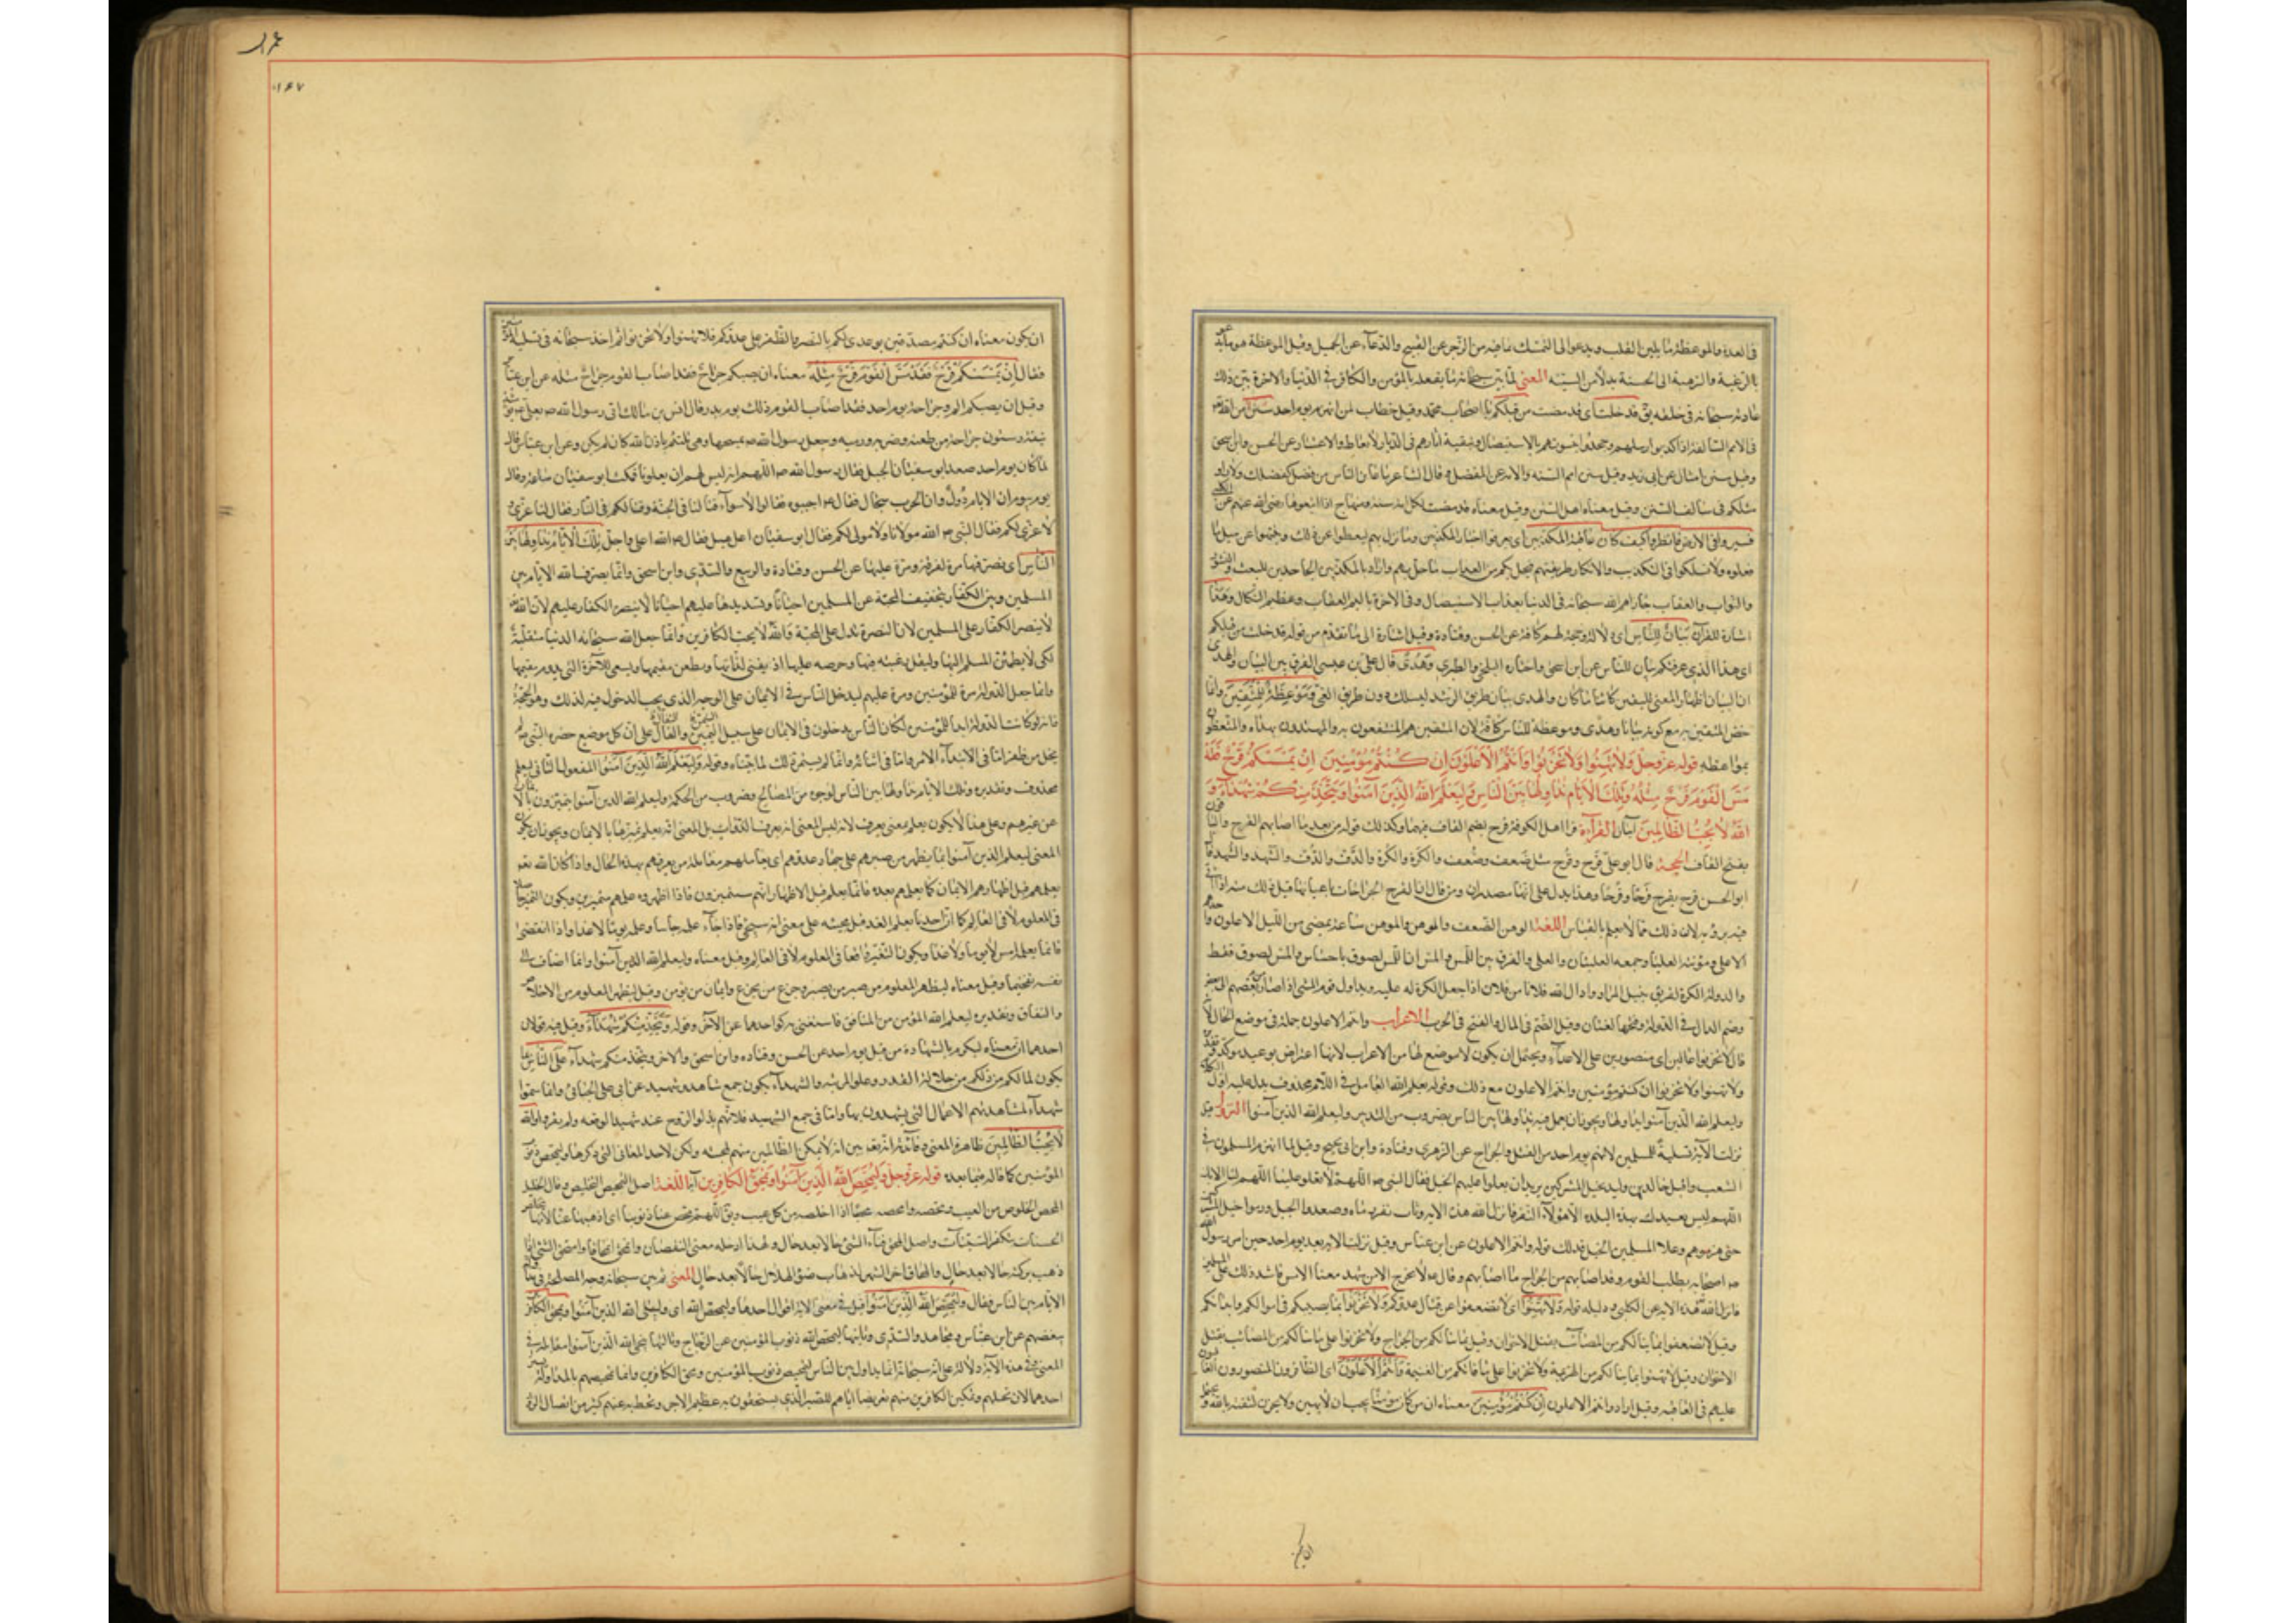 في العدة والموعظة ما يلين القلب ويدعو الى التمسك بما فيه من الزجر عن القبيح والدعاء عن الجميل وقيل الموعظة هو ما
بالرغبة والرهبة الى الحسنة بدلا من السيئه المعنى لما بين سبحانه ما يفعله بالمؤمن والكافر في الدنيا والاخرة بين ذلك
عادته سبحانه في خلقه فق قد خلت اى قد مضت من قبلكم يا اصحاب محمد وقيل خطاب لمن انهزم يوم احد سنن من الله
في الامم السالفة اذا كذبوا رسلهم وجحدوا نبوتهم بالاستيصال وتبقية اثارهم في الديار للاتعاظ والاعتبار عن الحسن وابن اسحق
وقيل سنن امثال عن ابن زيد وقيل سنن امم السنه والامه عن المفضل وقال الشاعر ما عاين الناس من فضل كفضلكم ولا راوا
مثلكم في سالف السنن وقيل معناه اهل السنن وقيل معناه قد مضت لكل امة سنة ومنهاج اذا اتبعوها رضى الله عنهم عن الكلبي
فسيروا في الارض فانظروا كيف كان عاقبة المكذبين اى تعرفوا اخبار المكذبين وما نزل بهم ليتعظوا عن ذلك وينتهوا عن مثل ما
فعلوه ولا تسلكوا في التكذيب والانكار طريقتهم فيحل بكم من العذاب ما حل بهم واراد بالمكذبين الجاحدين للبعث والنشور
والثواب والعقاب جازاهم الله سبحانه في الدنيا بعذاب الاستيصال وفي الاخرة باليم العقاب وعظيم النكال وهذا
اشارة للقرآن بيان للناس اى دلالة وحجة لهم كافة عن الحسن وقتادة وقيل اشارة الى ما تقدم من قوله قد خلت من قبلكم
اى هذا الذي عرفتكم بيان للناس عن ابن اسحق واختاره البلخي والطبري وهدى قال على بن عيسى الفرق بين البيان والهدى
ان البيان اظهار المعنى للنفس كائنا ما كان والهدى بيان طريق الرشد ليسلك دون طريق الغى وموعظة للمتقين وانما
خص المتقين به مع كونه بيانا وهدى وموعظة للناس كافة لان المتقين هم المنتفعون به والمهتدون بهداه والمتعظون
بمواعظه قوله عز وجل ولا تهنوا ولا تحزنوا وانتم الاعلون ان كنتم مؤمنين ان يمسسكم قرح فقد
مس القوم قرح مثله وتلك الايام نداولها بين الناس وليعلم الله الذين آمنوا ويتخذ منكم شهداء و
الله لا يحب الظالمين آيتان القرآءة قرا اهل الكوفة قرح بضم القاف فيهما وكذلك قوله من بعد ما اصابهم القرح والباقون
بفتح القاف الحجة قال ابو على قَرح وقُرح مثل ضَعف وضُعف والكَره والكُره والدَّف والدُّف والشَّهد والشُّهد قال
ابو الحسن قرح يقرح قَرحا وقُرحا وهذا يدل على انهما مصدران ومن قال ان القرح الجراحات باعيانها قبل ذلك منه اذا اتى
فيه برواية لان ذلك مما لا يعلم بالقياس اللغة الوهن الضعف والوهن والموهن ساعة تمضى من الليل الاعلون واحدهم
الاعلى ومؤنثة العليا وجمعه العليين والعلى والفرق بين اللمس والمس ان اللمس لصوق باحساس والمس لصوق فقط
والدولة الكرة لفريق بنيل المراد وادال الله فلانا من فلان اذا جعل الكرة له عليه وتداول قوم الشئ اذا صار من بعضهم الى بعض
وضم الدال في الدولة وفتحها لغتان وقيل الضم في المال والفتح في الحرب الاعراب وانتم الاعلون جملة في موضع الحال كأنه
قال لا تحزنوا عالين اى منصورين على الاعداء ويحتمل ان يكون لا موضع لها من الاعراب لانها اعتراض بوعيد وكذا وتقديره
ولا تهنوا ولا تحزنوا ان كنتم مؤمنين وانتم الاعلون مع ذلك وقوله يعلم الله العامل في اللام محذوف يدل عليه اول الكلام
وليعلم الله الذين آمنوا نداولها ويجوز ان يعمل فيه نداولها بين الناس بضروب من التدبير وليعلم الله الذين آمنوا النزول قيل
نزلت الآية تسلية للمسلمين لما نالهم يوم احد من القتل والجراح عن الزهري وقتادة وابن ابى نجيح وقيل لما انهزم المسلمون في
الشعب واقبل خالد بن وليد بخيل المشركين يريد ان يعلو عليهم الجبل فقال النبى ص اللهم لا يعلون علينا اللهم لا قوة لنا الا بك
اللهم ليس يعبدك بهذه البلدة الا هؤلاء النفر فانزل الله هذه الاية وثاب نفر رماه وصعدوا الجبل ورموا خيل المشركين
حتى هزموهم وعلا المسلمون الجبل فذلك قوله وانتم الاعلون عن ابن عباس وقيل نزلت الاية بعد يوم احد حين امر رسول الله
ص اصحابه بطلب القوم وقد اصابهم من الجراح ما اصابهم وقال ص لا يخرج الا من شهد معنا بالامس فاشتد ذلك على المسلمين
فانزل الله تع هذه الاية عن الكلبي ودليله قوله ولا تهنوا اى لا تضعفوا عن قتال عدوكم ولا تحزنوا بما يصيبكم في اموالكم وابدانكم
وقيل لا تضعفوا بما نالكم من المصائب بقتل الاخوان وقيل بما نالكم من الجراح ولا تحزنوا على ما نالكم من المصائب بقتل
الاخوان وقيل لا تهنوا بما نالكم من الهزيمة ولا تحزنوا على ما فاتكم من الغنيمة وانتم الاعلون اى الظافرون المنصورون الغالبون
عليهم في العاقبه وقيل اراد وانتم الاعلون ان كنتم مؤمنين معناه ان من كان مؤمنا يجب ان لا يهن ولا يحزن لثقته بالله ويحتمل
عمران
۱۶۷
ان يكون معناه ان كنتم مصدقين بوعدى لكم بالنصر والظفر على عدوكم فلا تهنوا ولا تحزنوا ثم اخذ سبحانه في تسلية المؤمنين
فقال ان يمسسكم قرح فقد مس القوم قرح مثله معناه ان يصبكم جراح فقد اصاب القوم جراح مثله عن ابن عباس
وقيل ان يصبكم الم وجراحة يوم احد فقد اصاب القوم ذلك يوم بدر وقال انس بن مالك اتى رسول الله ص بعلى ع وعليه
نيف وستون جراحة من طعنة وضربة ورمية وجعل رسول الله ص يمسحها وهى تلتئم باذن الله كان لم يكن وعن ابن عباس قال
لما كان يوم احد صعد ابو سفيان الجبل فقال رسول الله ص اللهم انه ليس لهم ان يعلونا فمكث ابو سفيان ساعة وقال
يوم بيوم ان الايام دول وان الحرب سجال فقال ص اجيبوه فقالوا لا سوآء قتلانا في الجنة وقتلاكم في النار فقال لنا عزى و
لا عزى لكم فقال النبى ص الله مولانا ولا مولى لكم فقال ابو سفيان اعل هبل فقال ص الله اعلى واجل وتلك الايام نداولها بين
الناس اى نصرفها مرة لفرقة ومرة عليها عن الحسن وقتادة والربيع والسدى وابن اسحق وانما يصرف الله الايام بين
المسلمين وبين الكفار بتخفيف المحنة عن المسلمين احيانا وتشديدها عليهم احيانا لا بنصرة الكفار عليهم لان الله
لا ينصر الكفار على المسلمين لان النصرة تدل على المحبة والله لا يحب الكافرين وانما جعل الله سبحانه الدنيا متقلبة
لكى لا يطمئن المسلم اليها ولتقل رغبته فيها وحرصه عليها اذ يفنى لذاتها ويظعن مقيمها ويسعى للآخرة التى يدوم نعيمها
وانما جعل الدولة مرة للمؤمنين ومرة عليهم ليدخل الناس في الايمان على الوجه الذى يجب الدخول فيه لذلك وهو الحجة
فانه لو كانت الدولة ابدا للمؤمنين لكان الناس يدخلون في الايمان على سبيل اليمن والفال على ان كل موضع حضره النبى ص لم
يخل من ظفر اما في الابتدآء الامر واما في انتهائه وانما لم يستمر ذلك لما بيناه وقوله وليعلم الله الذين آمنوا المفعول الثاني ليعلم
محذوف وتقديره وتلك الايام نداولها بين الناس لوجوه من المصالح وضروب من الحكمة وليعلم الله الذين آمنوا متميزين بالايمان
من غيرهم وعلى هذا لا يكون يعلم بمعنى يعرف لانه ليس المعنى انه يعرف الذوات بل المعنى انه يعلم تميزها بالايمان ويجوز ان يكون
المعنى ليعلم الذين آمنوا بما يظهر من صبرهم على جهاد عدوهم اى يعاملهم معاملة من يعرفهم بهذه الحال واذا كان الله تع
يعلمهم قبل اظهارهم الايمان كما يعلمهم بعده فانما يعلم قبل الاظهار انهم سيميزون فاذا اظهروه علمهم متميزين ويكون التغير حاصلا
في المعلوم لا في العالم كما ان احدنا يعلم الغد قبل مجيئه على معنى انه سيجئ فاذا جاء علمه جائيا وعلمه يوما لا غدا واذا انقضى
فانما يعلمه امس لا يوما ولا غدا ويكون التغير واقعا في المعلوم لا في العالم وقيل معناه وليعلم الله الذين آمنوا وانما اضاف الى
نفسه تفخيما وقيل معناه ليظهر المعلوم من صبر من يصبر وجزع من يجزع وايمان من يؤمن وقيل ليظهر المعلوم من الاخلاص
والنفاق وتقديره ليعلم الله المؤمن من المنافق فاستغنى بذكر احدهما عن الآخر وقوله ويتخذ منكم شهداء وقيل فيه قولان
احدهما ان معناه ليكرم بالشهادة من قتل يوم احد عن الحسن وقتاده وابن اسحق والاخر ويتخذ منكم شهداء على الناس بما
يكون لما لكم من ذلكم من جلالة القدر وعلو المرتبه والشهداء يكون جمع شاهد وشهيد عن ابى على الجبائي وانما سموا
شهداء لمشاهدتهم الاعمال التى يشهدون بها واما في جمع الشهيد فلانهم بذلوا الروح عند شهود الوقعه ولم يفروا والله
لا يحب الظالمين ظاهرة المعنى وفائدته انه تع بين انه لا يمكن الظالمين منهم لمحبته ولكن لاحد المعاني التى ذكرها وليمحص ذنوب
المؤمنين كما قاله فيما بعده قوله عز وجل وليمحص الله الذين آمنوا ويمحق الكافرين آية اللغة اصل التمحيص التخليص وقال الخليل
المحص الخلوص من العيب ومحصه وامحصه محصا اذا اخلصه من كل عيب ويق اللهم محص عنا ذنوبنا اى اذهبها عنا لانه تخليص
الحسنات بتكفير السيئات واصل المحق فناء الشئ حالا بعد حال ولهذا ادخله معنى النقصان وانمحق انمحاقا وامتحق الشئ اذا
ذهب بركته حالا بعد حال والمحاق اخر الشهر لذهاب ضوء الهلال حالا بعد حال المعنى ثم بين سبحانه وجه المصلحة في مداولة
الايام بين الناس فقال وليمحص الله الذين آمنوا قيل في معنى الاية اقوال احدها وليمحص الله اى وليبتلى الله الذين آمنوا ويمحق الكافرين
بنقصهم عن ابن عباس ومجاهد والسدى وثانيها ليمحص الله ذنوب المؤمنين عن الزجاج وثالثها ينجى الله الذين آمنوا
المعنى في هذه الآية دلالة على انه سبحانه انما يداول بين الناس لتمحيص ذنوب المؤمنين ومحق الكافرين وانما تمحيصهم بالمداولة
احدهما لان تخليتهم وتمكين الكافرين منهم تعريضا اياهم للصبر الذى يستحقون به عظيم الاجر ويحط به عنهم كثير من